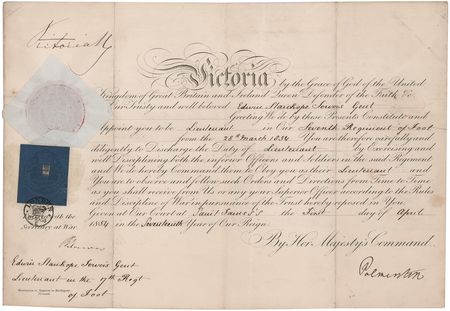 Victoria R
Victoria by the Grace of God of the United
Kingdom of Great Britain and Ireland Queen Defender of the Faith &c
Our Trusty and well beloved Edwin Stanhope Gent
Greeting We do by these Presents Constitute and
Appoint you to be Lieutenant in Our Seventh Regiment of Foot
from the 28th March 1854. You are therefore carefully and
diligently to Discharge the Duty of Lieutenant by Exercising and
well Disciplining both the inferiour Officers and Soldiers in the said Regiment
and We do hereby Command them to Obey you as their Lieutenant and
You are to observe and follow such Orders and Directions from Time to Time
as you shall receive from Us or any your Superior Officer according to the Rules
and Discipline of War in pursuance of the Trust hereby reposed in You.
Given at Our Court at Saint James's the First day of April
1854 in the Seventeenth Year of Our Reign.
with the
Secretary at War
By Her Majesty's Command.
Palmerston
Edwin Stanhope Gent
Lieutenant in the Regt
of Foot